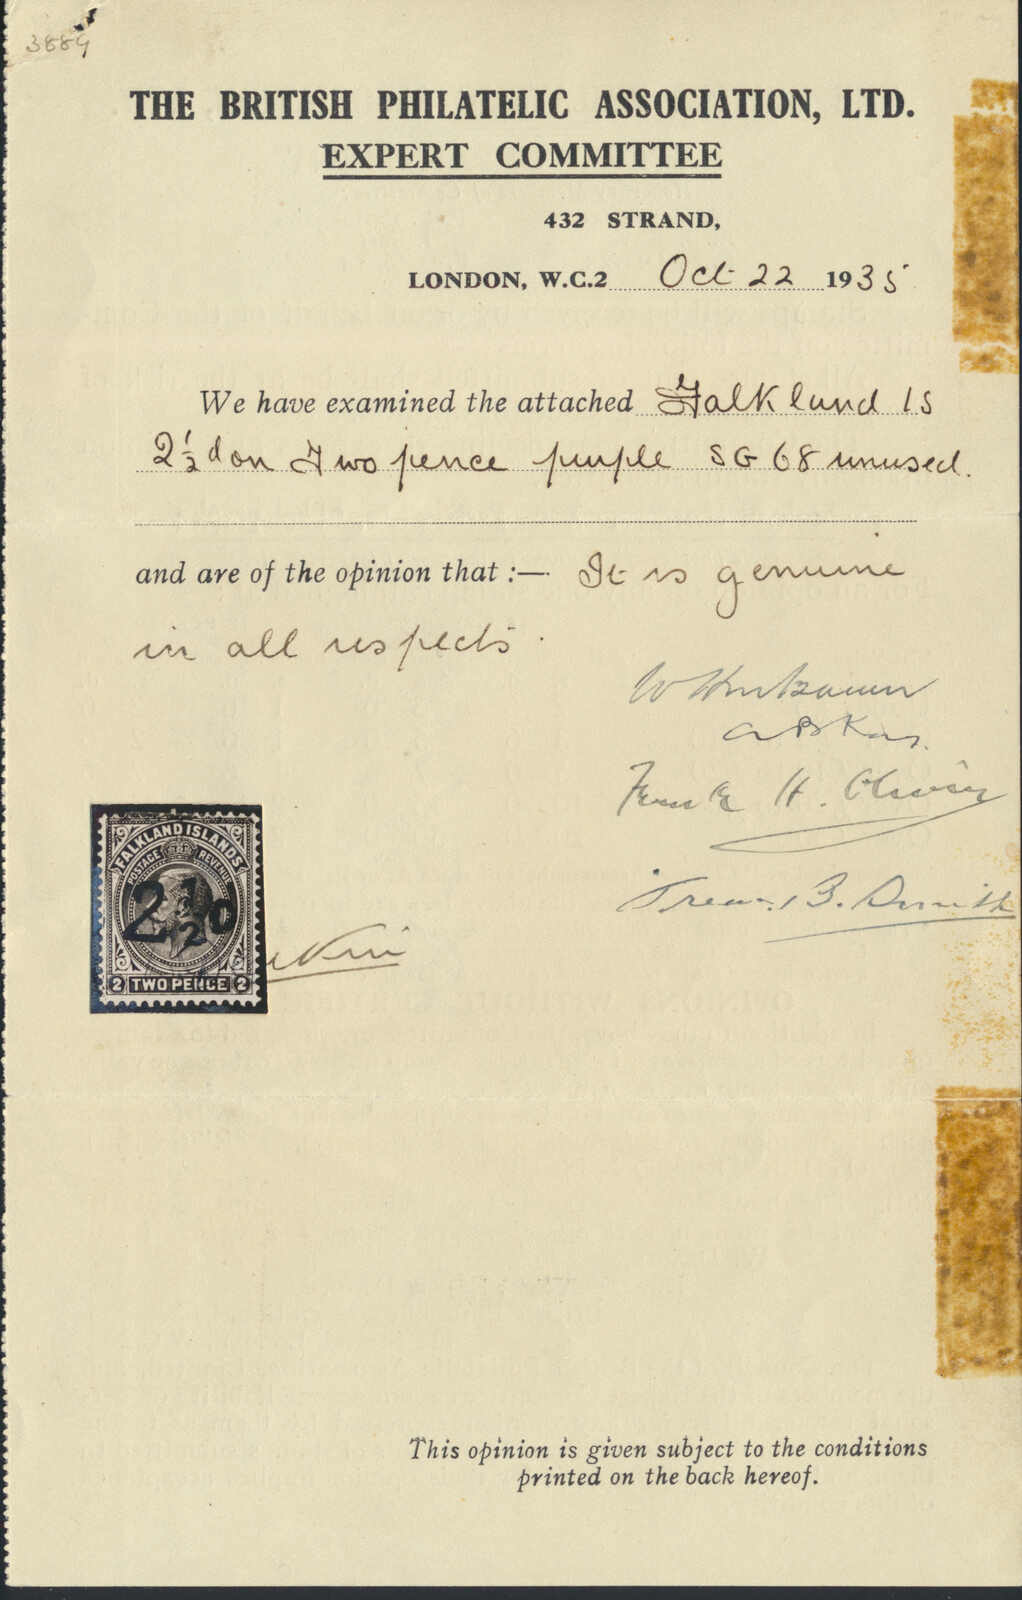 3889
THE BRITISH PHILATELIC ASSOCIATION, LTD.
EXPERT COMMITTEE
432 STRAND,
LONDON, W.C.2 Oct 22 1935
We have examined the attached Falkland Is
2½d on Two pence purple SG 68 unused.
and are of the opinion that :— It is genuine
in all respects.
Frank H. Oliver
B. Smith
FALKLAND ISLANDS
POSTAGE REVENUE
2½D
2 TWO PENCE 2
This opinion is given subject to the conditions
printed on the back hereof.